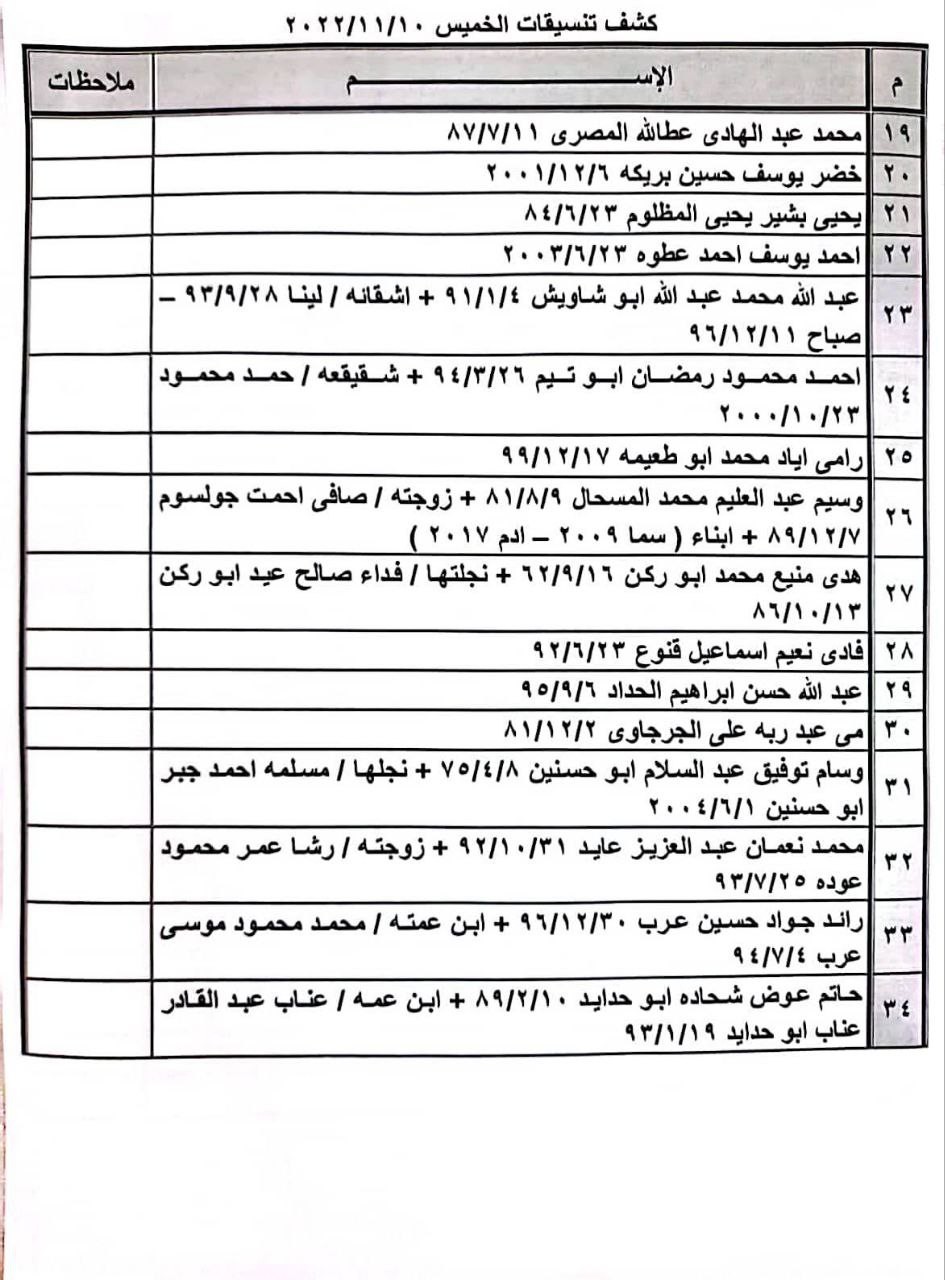 كشف تنسيقات الخميس ٢٠٢٢/١١/١٠
م الإســـــــــم ملاحظات
١٩ محمد عبد الهادى عطالله المصرى ٨٧/٧/١١
٢٠ خضر يوسف حسين بريكه ٢٠٠١/١٢/٦
٢١ يحيى بشير يحيى المظلوم ٨٤/٦/٢٣
٢٢ احمد يوسف احمد عطوه ٢٠٠٣/٦/٢٣
٢٣ عبد الله محمد عبد الله ابو شاويش ٩١/١/٤ + اشقائه / لينا ٩٣/٩/٢٨ –
صباح ٩٦/١٢/١١
٢٤ احمد محمود رمضان ابو تيم ٩٤/٣/٢٦ + شقيقعه / حمد محمود
٢٠٠٠/١٠/٢٣
٢٥ رامى اياد محمد ابو طعيمه ٩٩/١٢/١٧
٢٦ وسيم عبد العليم محمد المسحال ٨١/٨/٩ + زوجته / صافى احمت جولسوم
٨٩/١٢/٧ + ابناء ( سما ٢٠٠٩ – ادم ٢٠١٧ )
٢٧ هدى منيع محمد ابو ركن ٦٢/٩/١٦ + نجلتها / فداء صالح عيد ابو ركن
٨٦/١٠/١٣
٢٨ فادى نعيم اسماعيل قنوع ٩٢/٦/٢٣
٢٩ عبد الله حسن ابراهيم الحداد ٩٥/٩/٦
٣٠ مى عبد ربه على الجرجاوى ٨١/١٢/٢
٣١ وسام توفيق عبد السلام ابو حسنين ٧٥/٤/٨ + نجلها / مسلمه احمد جبر
ابو حسنين ٢٠٠٤/٦/١
٣٢ محمد نعمان عبد العزيز عايد ٩٢/١٠/٣١ + زوجته / رشا عمر محمود
عوده ٩٣/٧/٢٥
٣٣ رائد جواد حسين عرب ٩٦/١٢/٣٠ + ابن عمته / محمد محمود موسى
عرب ٩٤/٧/٤
٣٤ حاتم عوض شحاده ابو حدايد ٨٩/٢/١٠ + ابن عمه / عناب عبد القادر
عناب ابو حدايد ٩٣/١/١٩